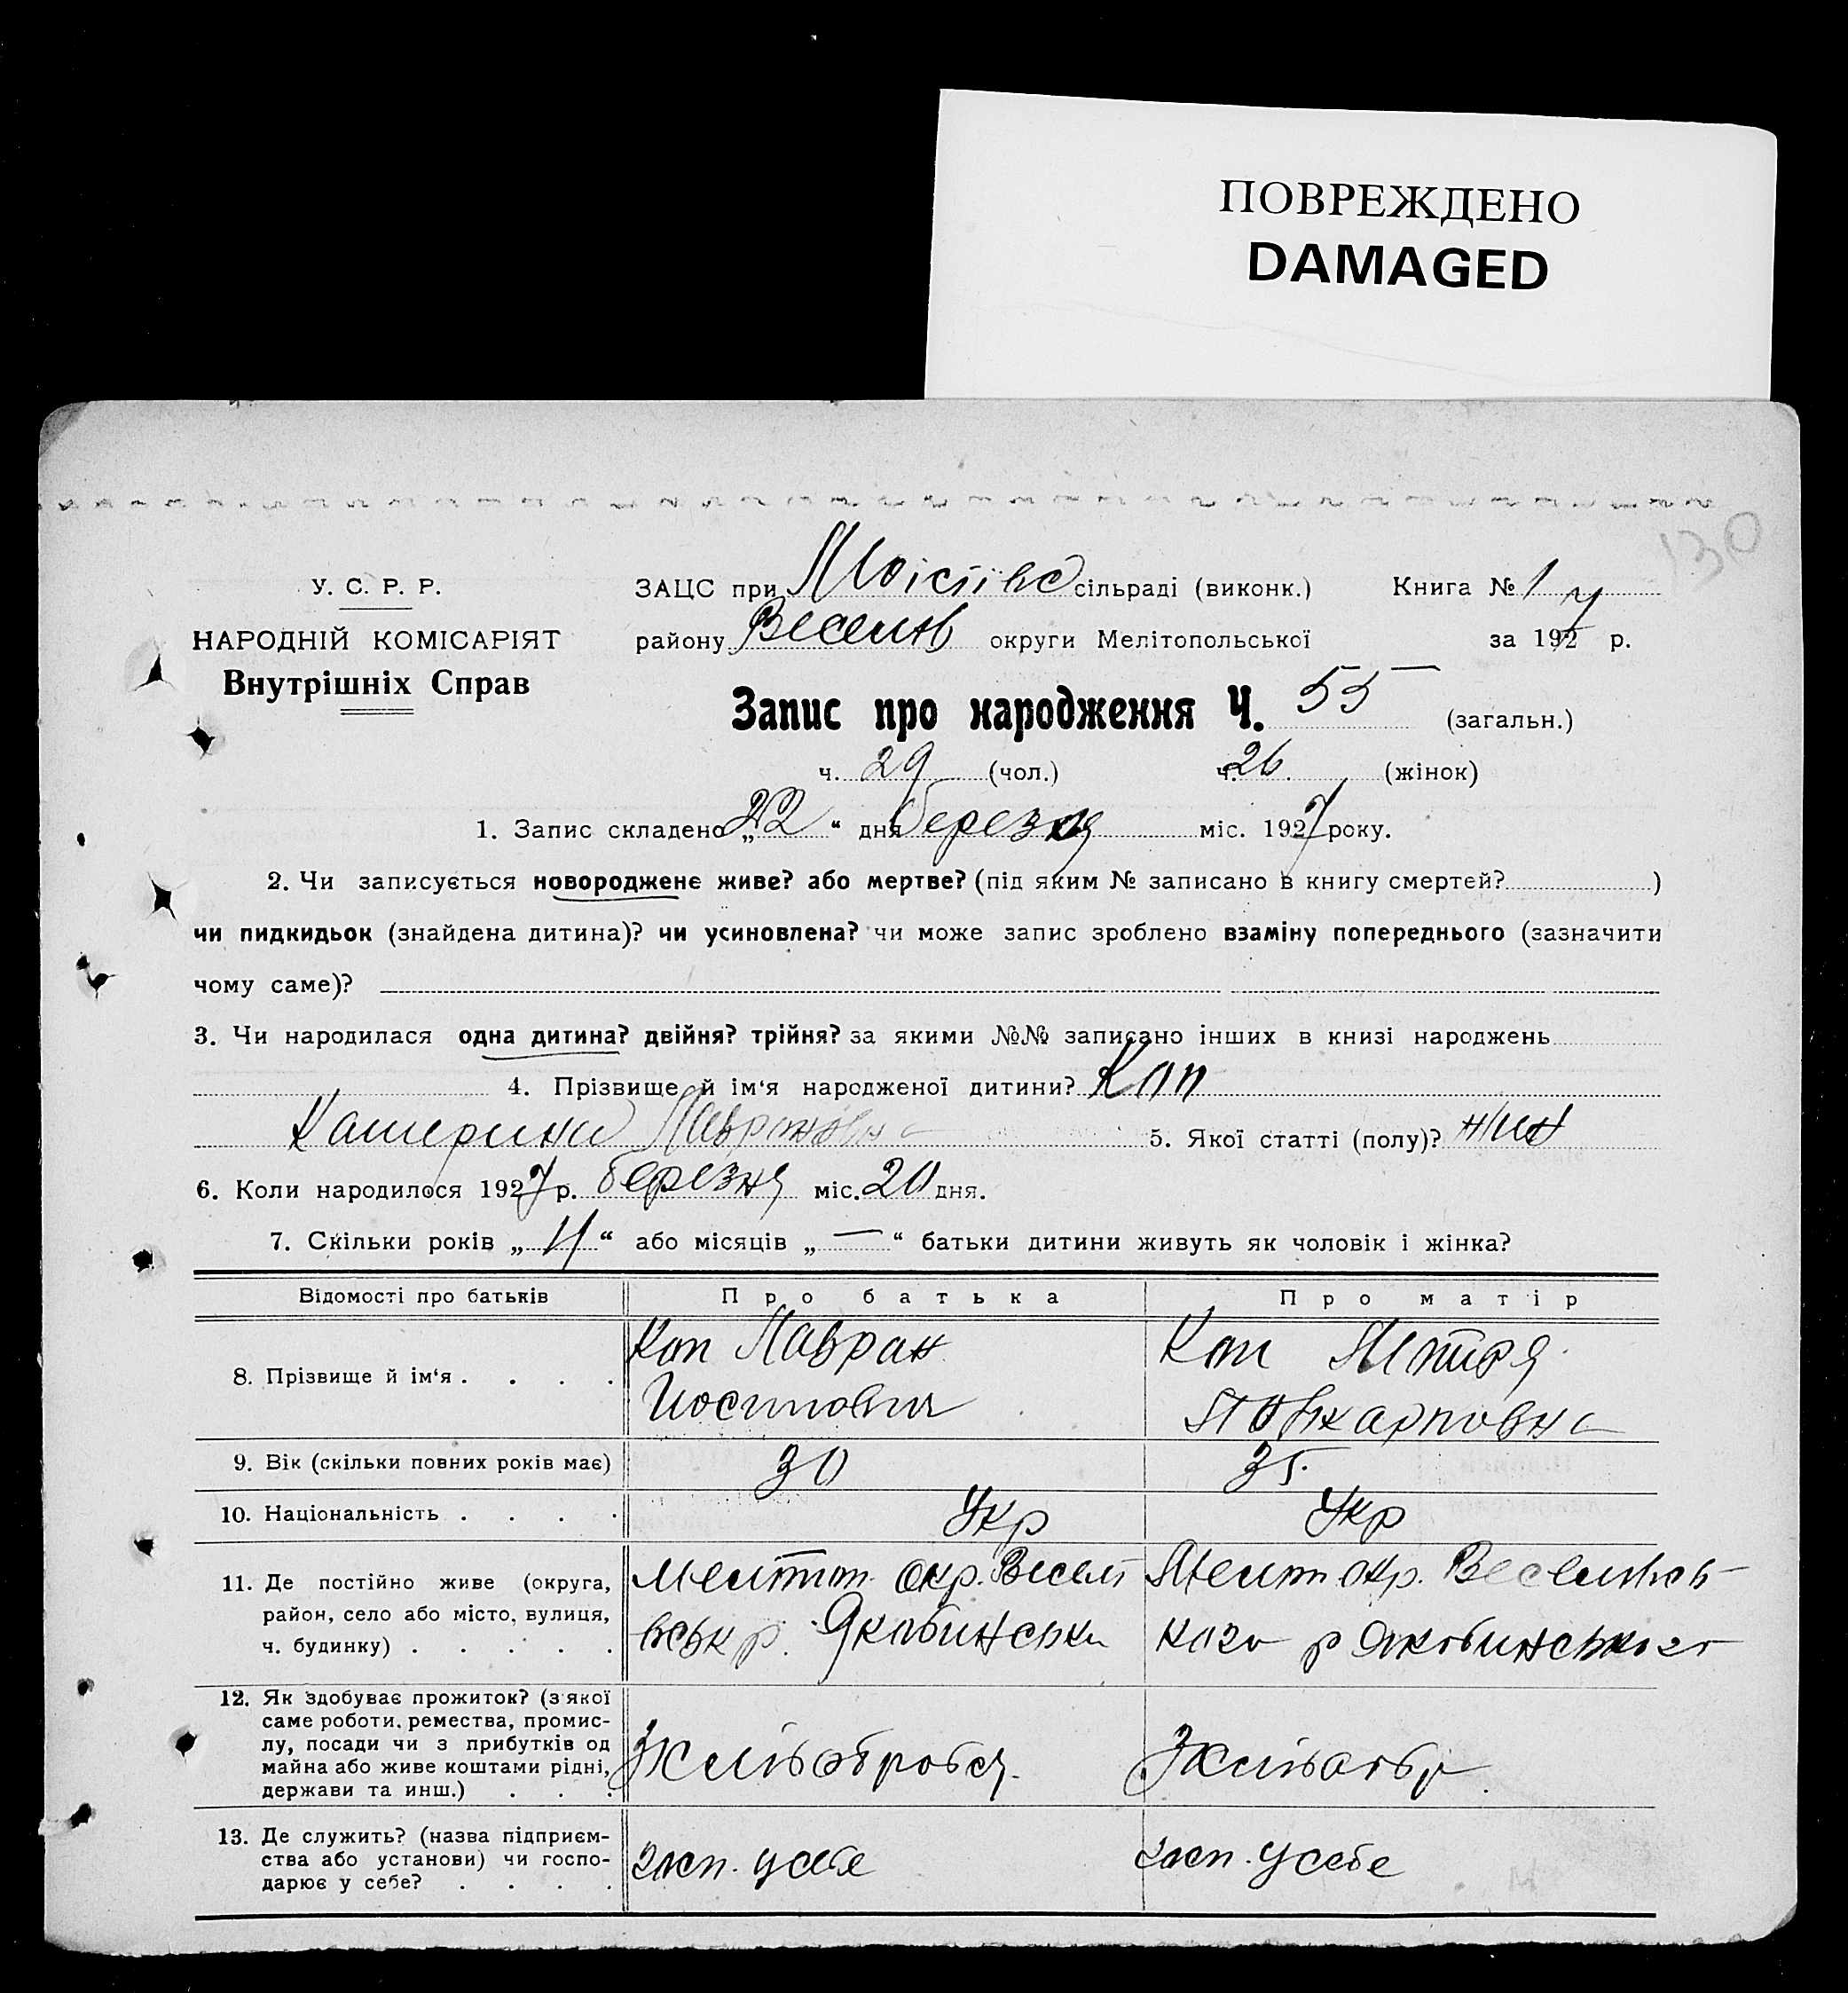 ПОВРЕЖДЕНО
DAMAGED
130
У. С. Р. Р.
НАРОДНІЙ КОМІСАРІЯТ
Внутрішніх Справ
ЗАЦС при сільраді (виконк.) Книга № 1
району Веселів округи Мелітопольської за 1927 р.
Запис про народження Ч. 55 (загальн.)
ч. 29 (чол.) ч. 26 (жінок)
1. Запис складено „22“ дня березня міс. 1927 року.
2. Чи записується новороджене живе? або мертве? (під яким № записано в книгу смертей? )
чи пидкидьок (знайдена дитина)? чи усиновлена? чи може запис зроблено взаміну попереднього (зазначити
чому саме)?
3. Чи народилася одна дитина? двійня? трійня? за якими №№ записано інших в книзі народжень
4. Прізвище й ім‘я народженої дитини? Коп
Катерина Лавранівна 5. Якої статті (полу)? жин
6. Коли народилося 1927 р. березня міс. 20 дня.
7. Скільки років „ “ або місяців „—“ батьки дитини живуть як чоловік і жінка?
Відомості про батьків Про батька Про матір
8. Прізвище й ім‘я . . . . Коп Лавран Коп
Йосипович
9. Вік (скільки повних років має) 30 35.
10. Національність . . . . Укр Укр
11. Де постійно живе (округа,
район, село або місто, вулиця,
ч. будинку) . . . . .
Мелітоп. окр. Весел
івськ р. Якобинська
Меліт окр. Веселівсь-
кого р Якобинського
12. Як здобуває прожиток? (з якої
саме роботи, ремества, промис-
лу, посади чи з прибутків од
майна або живе коштами рідні,
держави та инш.) . . .
З хліборобся.
З хлібор
13. Де служить? (назва підприєм-
ства або установи) чи госпо-
дарює у себе? . . . .
госп. у себе
госп. у себе